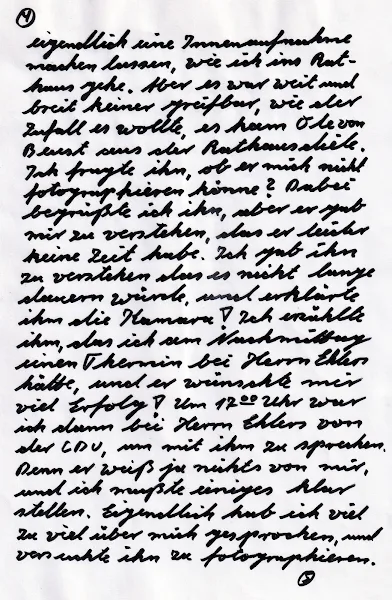 4
eigendlich eine Innenaufnahme
machen lassen, wie ich ins Rat-
haus gehe. Aber es war weit und
breit keiner greifbar, wie der
Zufall es wollte, es kam Ole von
Beust aus der Rathausdiele.
Ich fragte ihn, ob er mich nicht
fotographieren könne? Dabei
begrüßte ich ihn, aber er gab
mir zu verstehen, das er leider
keine Zeit habe. Ich gab ihn
zu verstehen das es nicht lange
dauern würde, und erklärte
ihm die Kamara! Ich erzählte
ihm, das ich am Nachmittag
einen Thermin bei Herrn Ehlers
hätte, und er wünschte mir
viel Erfolg! Um 17⁰⁰ Uhr war
ich dann bei Herrn Ehlers von
der CDU, um mit ihm zu sprechen.
Denn er weiß ja nichts von mir,
und ich mußte einiges klar
stellen. Eigendlich hab ich viel
zu viel über mich gesprochen, und
versuchte ihn zu fotographieren.
5